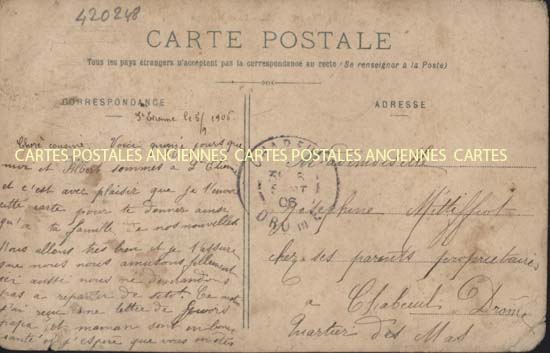 420248
CARTE POSTALE
Tous les pays étrangers n'acceptent pas la correspondance au recto (Se renseigner à la Poste)
CORRESPONDANCE
ADRESSE
St Etienne le 5/9 1906
Chère cousine Voici quinze jours que
moi et Albert sommes à St Etienne
CARTES POSTALES ANCIENNES CARTES POSTALES ANCIENNES CARTES
et c'est avec plaisir que je t'envoie
cette carte pour te donner ainsi
qu'à ta famille de nos nouvelles
Nous allons très bien et je t'assure
que nous nous amusons tellement
ici aussi nous ne demandons
pas à repartir de sitôt. Ce matin
j'ai reçu une lettre de
papa et maman sont en bonne
santé et j'espère que vous en êtes
CHABEUIL
SEPT
06
DROME
Mademoiselle
Joséphine
chez ses parents propriétaires
à Chabeuil Drôme
Quartier des Mas